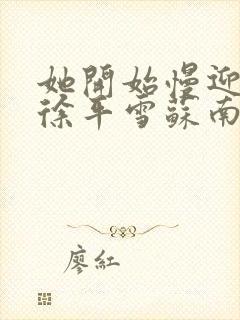 她開始慢迎
徐平雪蘇南
廖紅